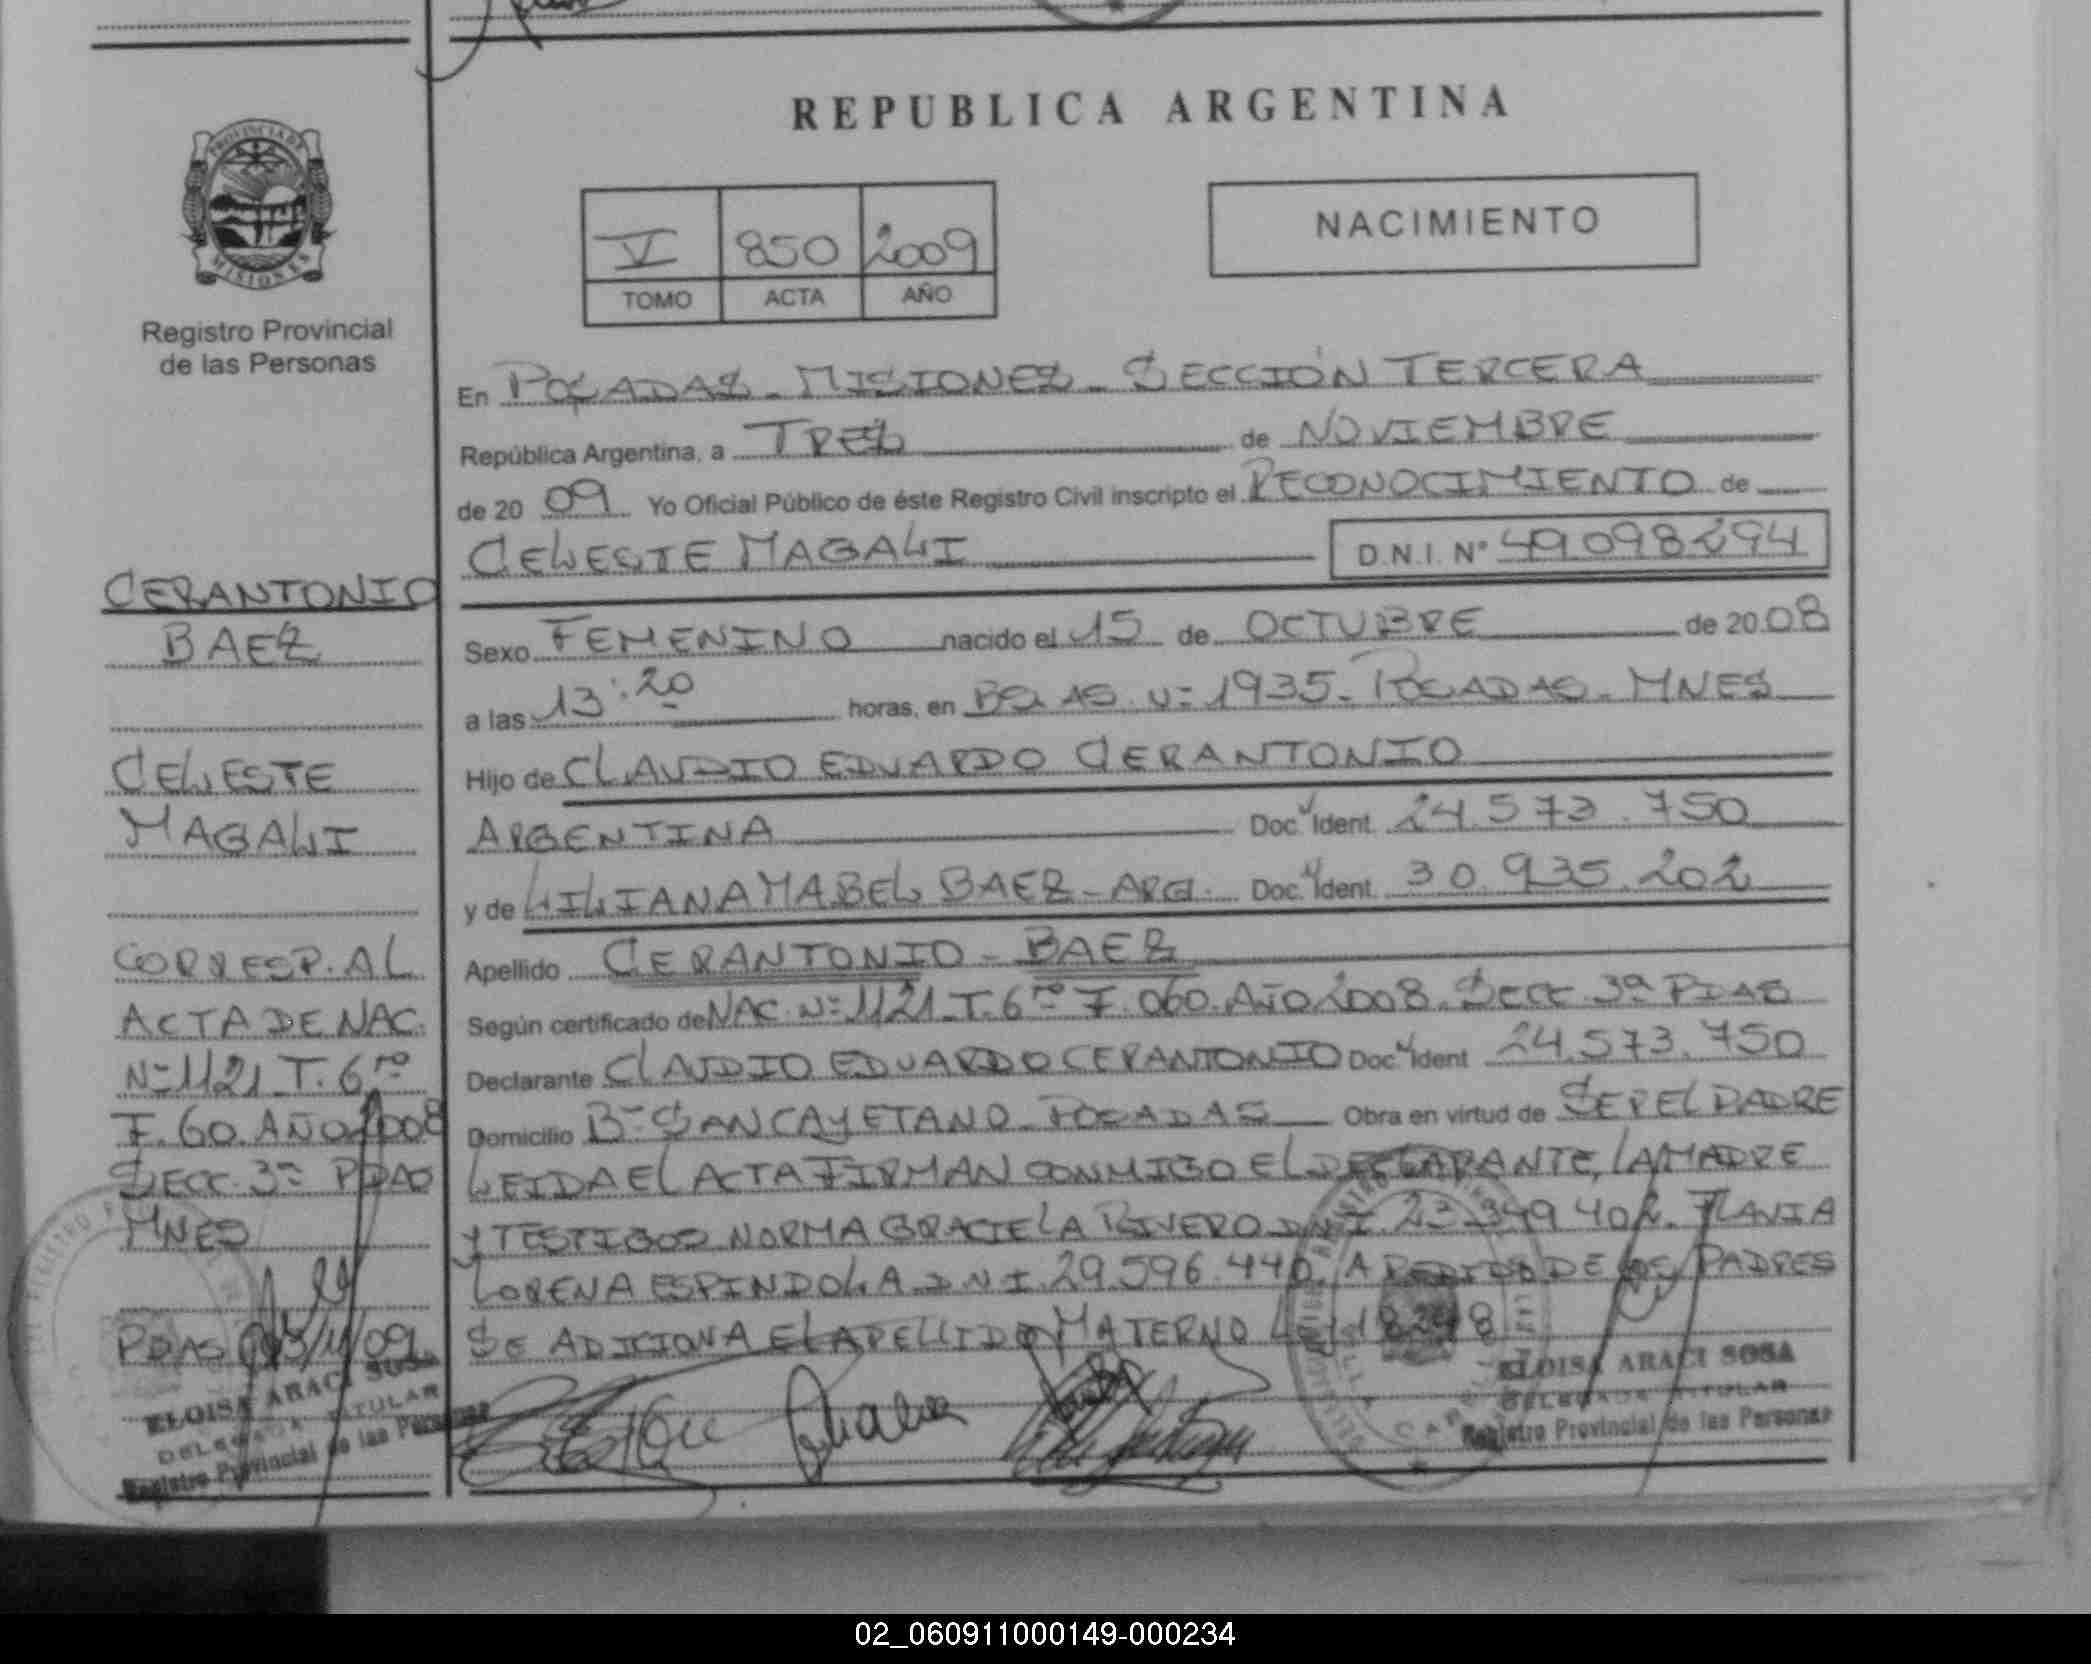 REPUBLICA ARGENTINA
PROVINCIA DE
MISIONES
Registro Provincial
de las Personas
V 850 2009
TOMO ACTA AÑO
NACIMIENTO
En POSADAS - MISIONES - SECCIÓN TERCERA
República Argentina, a TRES de NOVIEMBRE
de 2009 Yo Oficial Público de éste Registro Civil inscripto el RECONOCIMIENTO de
CELESTE MAGALI D.N.I. Nº 49098294
Sexo FEMENINO nacido el 15 de OCTUBRE de 2008
a las 13:20 horas, en BS. AS. Nº 1935 - POSADAS - MNES
Hijo de CLAUDIO EDUARDO CERANTONIO
ARGENTINA Doc. Ident. 24.573.750
y de LILIANA MABEL BAEZ - ARG. Doc. Ident. 30.935.202
Apellido CERANTONIO - BAEZ
Según certificado de NAC. Nº 1121 T. 6to F. 060. AÑO 2008. SECC. 3ª PDAS
Declarante CLAUDIO EDUARDO CERANTONIO Doc. Ident 24.573.750
Domicilio Bº SAN CAYETANO - POSADAS Obra en virtud de SER EL PADRE
LEIDA EL ACTA FIRMAN CONMIGO EL DECLARANTE, LA MADRE
Y TESTIGOS NORMA GRACIELA RIVERO D.N.I. 23.349.402. FLAVIA
LORENA ESPINDOLA D.N.I. 29.596.440. A PEDIDO DE LOS PADRES
SE ADICIONA EL APELLIDO MATERNO LEY 18248
ELOISA ARACI SOSA
DELEGADA TITULAR
Registro Provincial de las Personas
CERANTONIO
BAEZ
CELESTE
MAGALI
CORRESP. AL
ACTA DE NAC.
Nº 1121 T. 6to
F. 60. AÑO 2008
SECC. 3ª PDAS
MNES
PDAS 03/11/09
ELOISA ARACI SOSA
DELEGADA TITULAR
Registro Provincial de las Personas
02_060911000149-000234